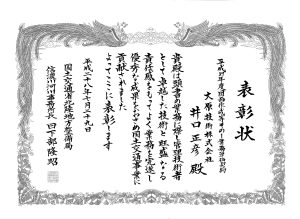 表彰状
大原技術株式会社
井口正彦 殿
貴殿は頭書の業務に携る管理技術者
として卓越した技術と旺盛なる
責任感をもってよく業務を完遂し
優秀な成果をおさめ国土交通事業に
貢献されました
よってここに表彰します
平成二十八年七月二十九日
国土交通省北陸地方整備局
信濃川河川事務所長 日下部隆昭